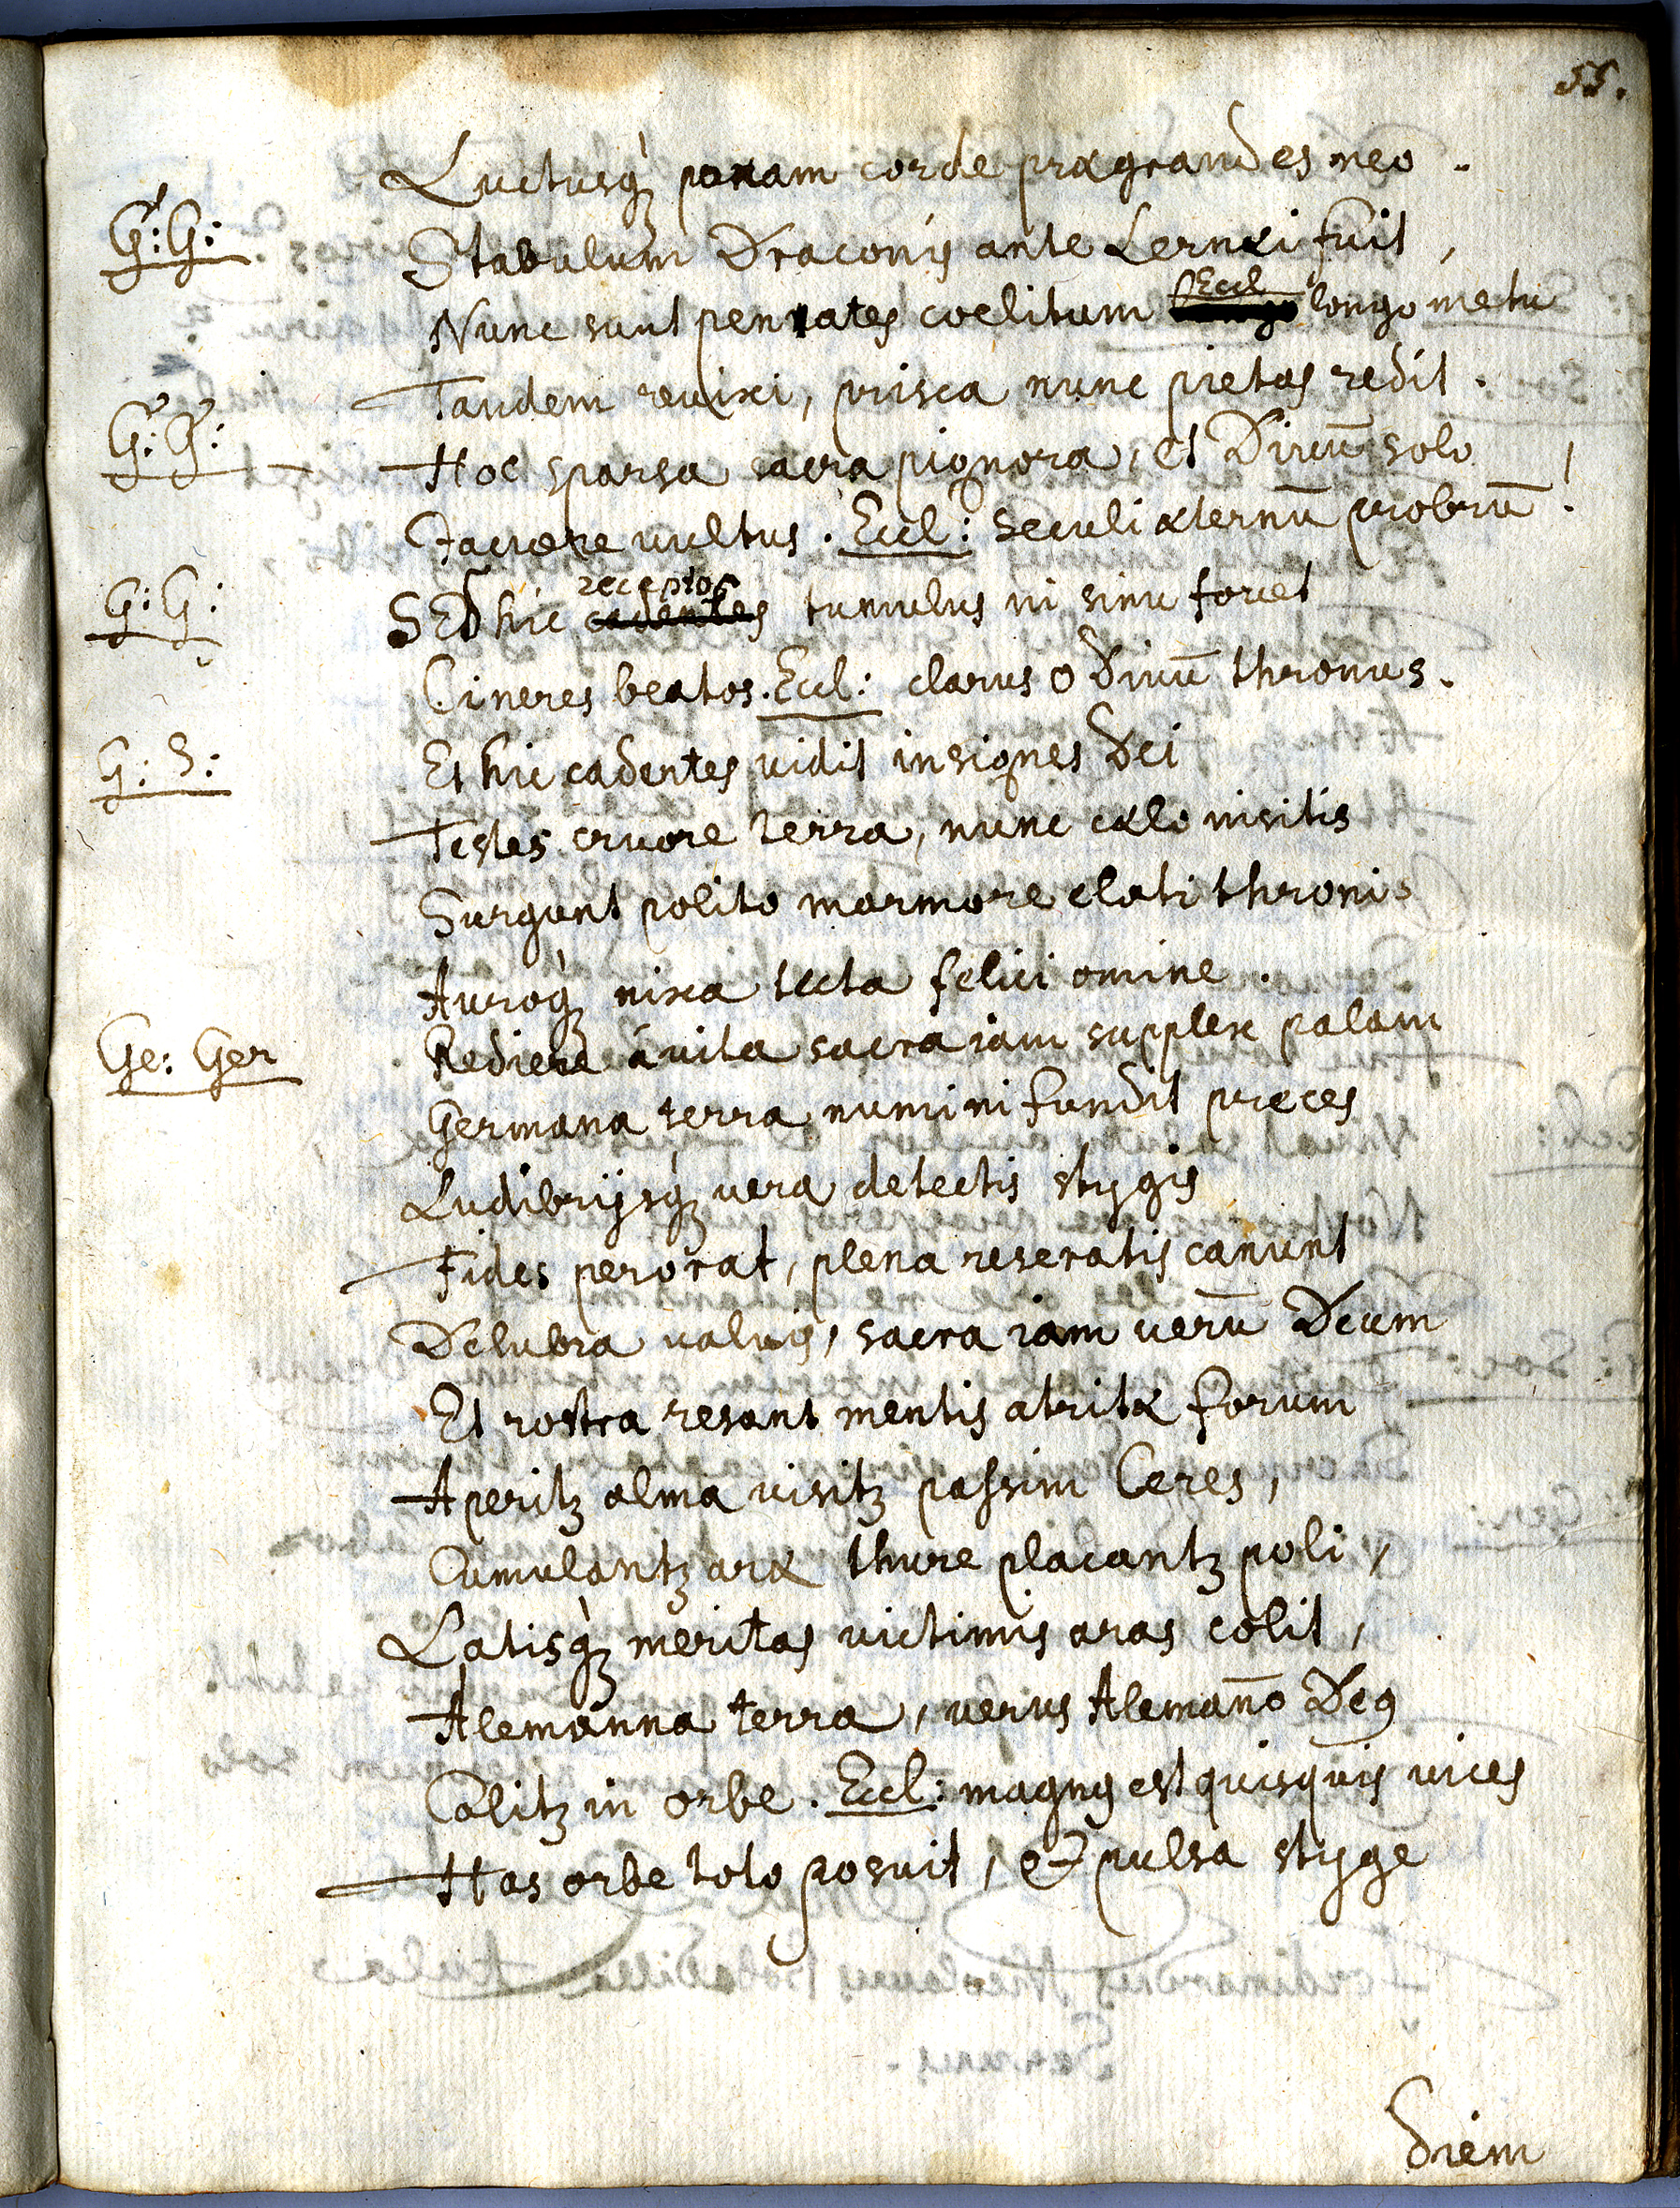 55.
Luctusq̀ꝫ ponam corde prægrandes meo.
G: G: Stabulum Draconis ante Lernæi fuit,
Nunc sunt penates coelitum Eccl longo metu
Tandem reuixi, prisca nunc pietas redit.
G: G: Hoc sparsa sacra pignora, et Diuū solo
Jacuere uultus. Eccl: seculi æternū probrū!
G: G: SEd hic cadentes receptos tumulus ni sinu fouet
Cineres beatos. Eccl: clarus o Diuū thronus.
G: S: Et hic cadentes uidit insignes Dei
Testes cruore terra, nunc cælo nisitis
Surgunt polito marmore elati throni.
Auroq̀ꝫ nixa tecta felici omine.
Ge: Ger Rediere áuita sacra iam supplex palam
Germana terra numini fundit preces
Ludibrijsq̀ꝫ uera detectis stygis
Fides perorat, plena reseratis canunt
Delubra ualuis, sacra iam uerū Deum
Et rostra resant mentis atritæ forum
Aperitꝫ alma uisitꝫ passim Ceres,
Cumulantꝫ aræ thure placantꝫ poli,
Latisq̀ꝫ meritas uictimis aras colit,
Alemanna terra, uerus Alemañno Deꝰ
Colitꝫ in orbe. Eccl: magnꝰ est quisquis uices
Has orbe toto posuit, & pulsa styge
diem